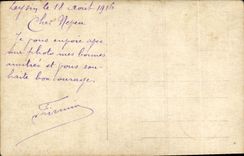 Leysin le 18 Août 1916
Cher Neveu
Je vous envoie avec
une photo mes bonnes
amitiés et vous sou-
haite bon courage.
Firmin